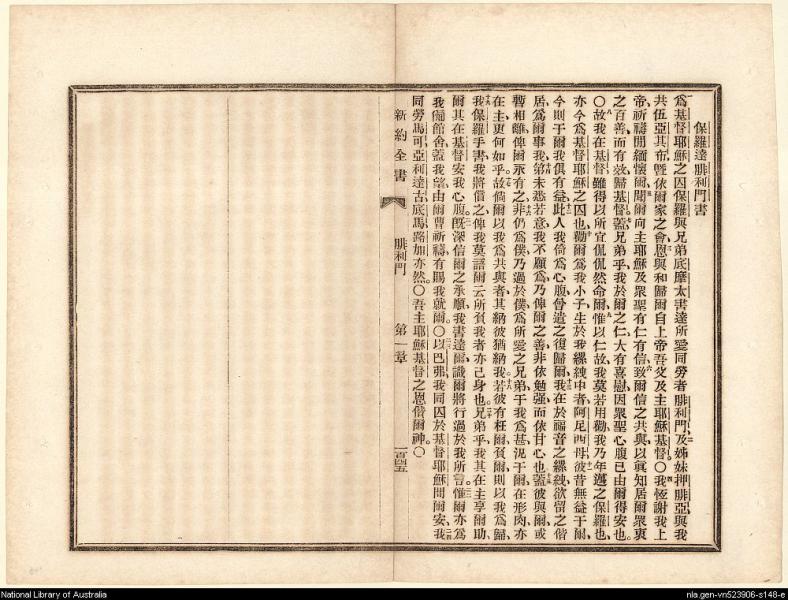 保羅達腓利門書
爲基督耶穌之囚保羅與兄弟底摩太書達所愛同勞者腓利門及姊妹押腓亞與我
共伍亞其布暨依爾家之會恩與和歸爾自上帝吾父及主耶穌基督○我恆謝我上
帝祈禱間緬懷爾聞爾向主耶穌及衆聖有仁有信致爾信之共與以眞知居爾衆衷
之百善而有效歸基督蓋兄弟乎我於爾之仁大有喜慰因衆聖心腹已由爾得安也
○故我在基督雖得以所宜侃侃然命爾惟以仁故我莫若用勸我乃年邁之保羅也
亦今爲基督耶穌之囚也勸爾爲我小子生於我縲絏中者阿尼西母彼昔無益于爾
今則于爾我俱有益此人我倚爲心腹曾遣之復歸爾我在於福音之縲絏欲留之偕
居爲爾事我第未悉若意我不願爲乃俾爾之善非依勉强而依甘心也蓋彼與爾或
暫相離俾爾永有之非仍爲僕乃過於僕爲所愛之兄弟于我爲甚况于爾在形肉亦
在主更何如乎故倘爾以我爲共與者其納彼猶納我若彼有枉爾負爾則以我爲歸
我保羅手書我將償之俾我莫語爾云所負我者亦己身也兄弟乎我其在主享爾助
爾其在基督安我心腹旣深信爾之承順我書達爾識爾將行過於我所言惟爾亦爲
我備館舍蓋我望由爾曹祈禱有賜我就爾○以巴弗我同囚於基督耶穌問爾安我
同勞馬可亞利達古底馬路加亦然○吾主耶穌基督之恩偕爾神○
新約全書
腓利門
第一章
一百四五
National Library of Australia
nla.gen-vn523906-s148-e